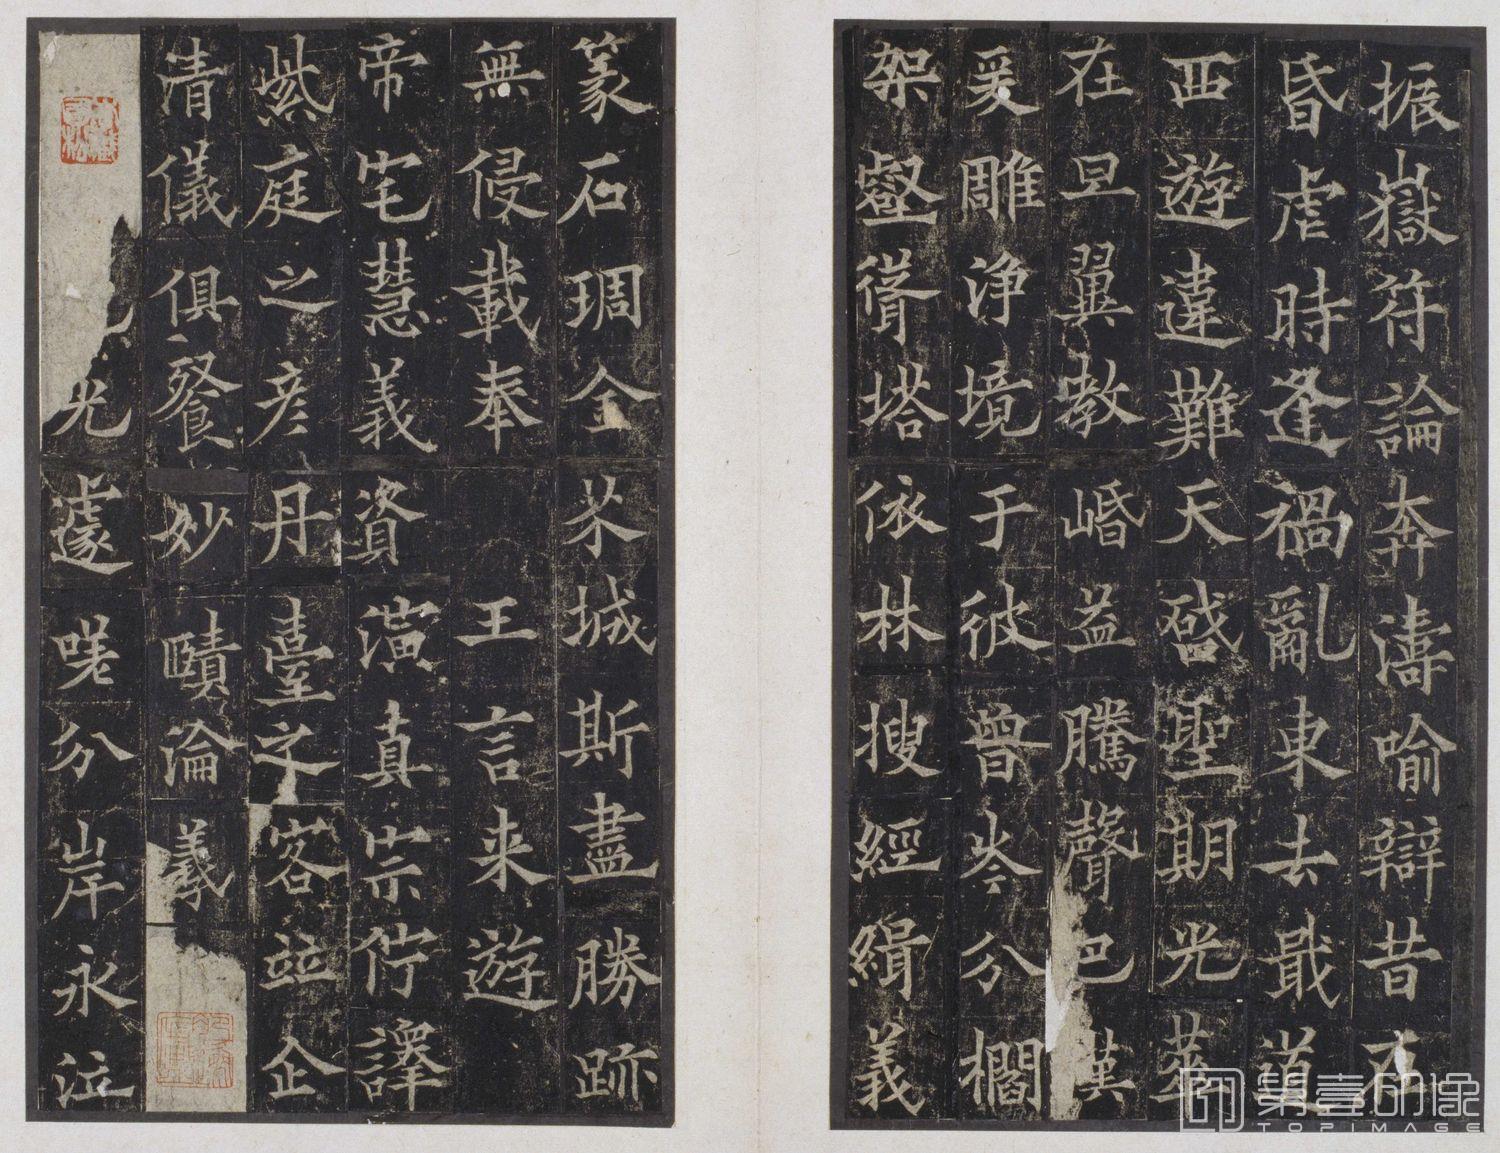 振嶽符論奔濤喻辯昔在
昏虐時逢禍亂東去戢道
西遊違難天啓聖期光華
在旦翼教崏益騰聲巴漢
爰雕淨境于彼曾岑分櫚
架壑聳塔依林搜經緝義
篆石琱金芥城斯盡勝跡
無侵載奉　王言来遊
帝宅慧義資演真宗佇譯
紫庭之彦丹臺之客竝企
清儀俱餐妙賾淪羲
光遽嗟分岸永泣
第壹印像
TOPIMAGE